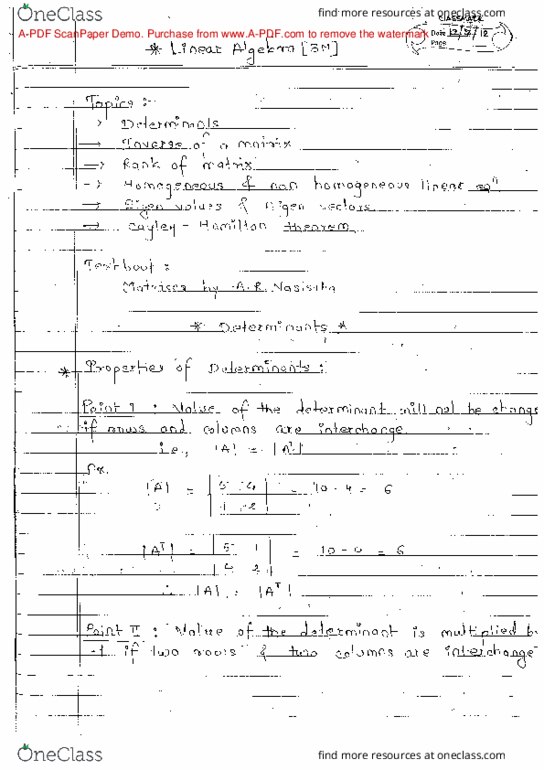 OneClass
find more resources at oneclass.com
A-PDF ScanPaper Demo. Purchase from www.A-PDF.com to remove the watermark
CLASSMATE
Date
Page
* Linear Algebra [3M]
Topics :-
→ Determinants
→ Inverse of a matrix
→ Rank of matrix
→ Homogeneous & non homogeneous linear eqn
→ Eigen values & Eigen vectors
→ Cayley - Hamilton theorem
Textbook :
Matrices by A.R. Vasistha
* Determinants *
* Properties of Determinants :
Point I : Value of the determinant will not be change
if rows and columns are interchange.
i.e., |A| = |Aᵀ|
Ex.
|A| = | 5 4 | = 10 - 4 = 6
| 1 2 |
|Aᵀ| = | 5 1 | = 10 - 4 = 6
| 4 2 |
∴ |A| = |Aᵀ|
Point II : Value of the determinant is multiplied b
-1 if two rows & two columns are interchange
OneClass
find more resources at oneclass.com